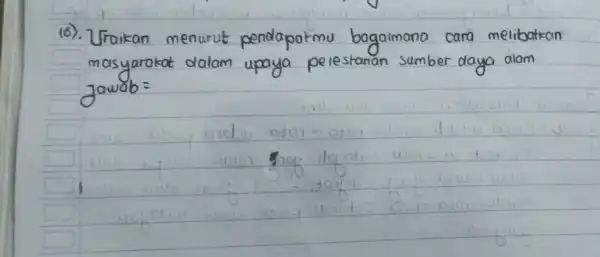 (6). Uraikan menurut pendapatmu bagaimana cara melibatkan
masyarakat dalam upaya pelestarian sumber daya alam
Jawab =